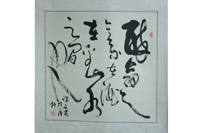 醉翁之
意不在酒
在乎山水
之間也